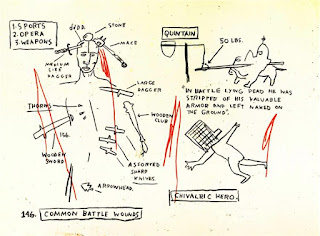 1. SPORTS
2. OPERA
3. WEAPONS
STONE
MACE
MEDIUM
LIKE
DAGGER
LARGE
DAGGER
THORNS
WOODEN
CLUB
156.
WOODEN
SWORD
ASSORTED
SHARP
KNIVES
ARROWHEAD.
146. COMMON BATTLE WOUNDS
QUINTAIN
50 LBS.
"IN BATTLE LYING DEAD HE WAS
STRIPPED OF HIS VALUABLE
ARMOR AND LEFT NAKED ON
THE GROUND".
CHIVALRIC HERO.